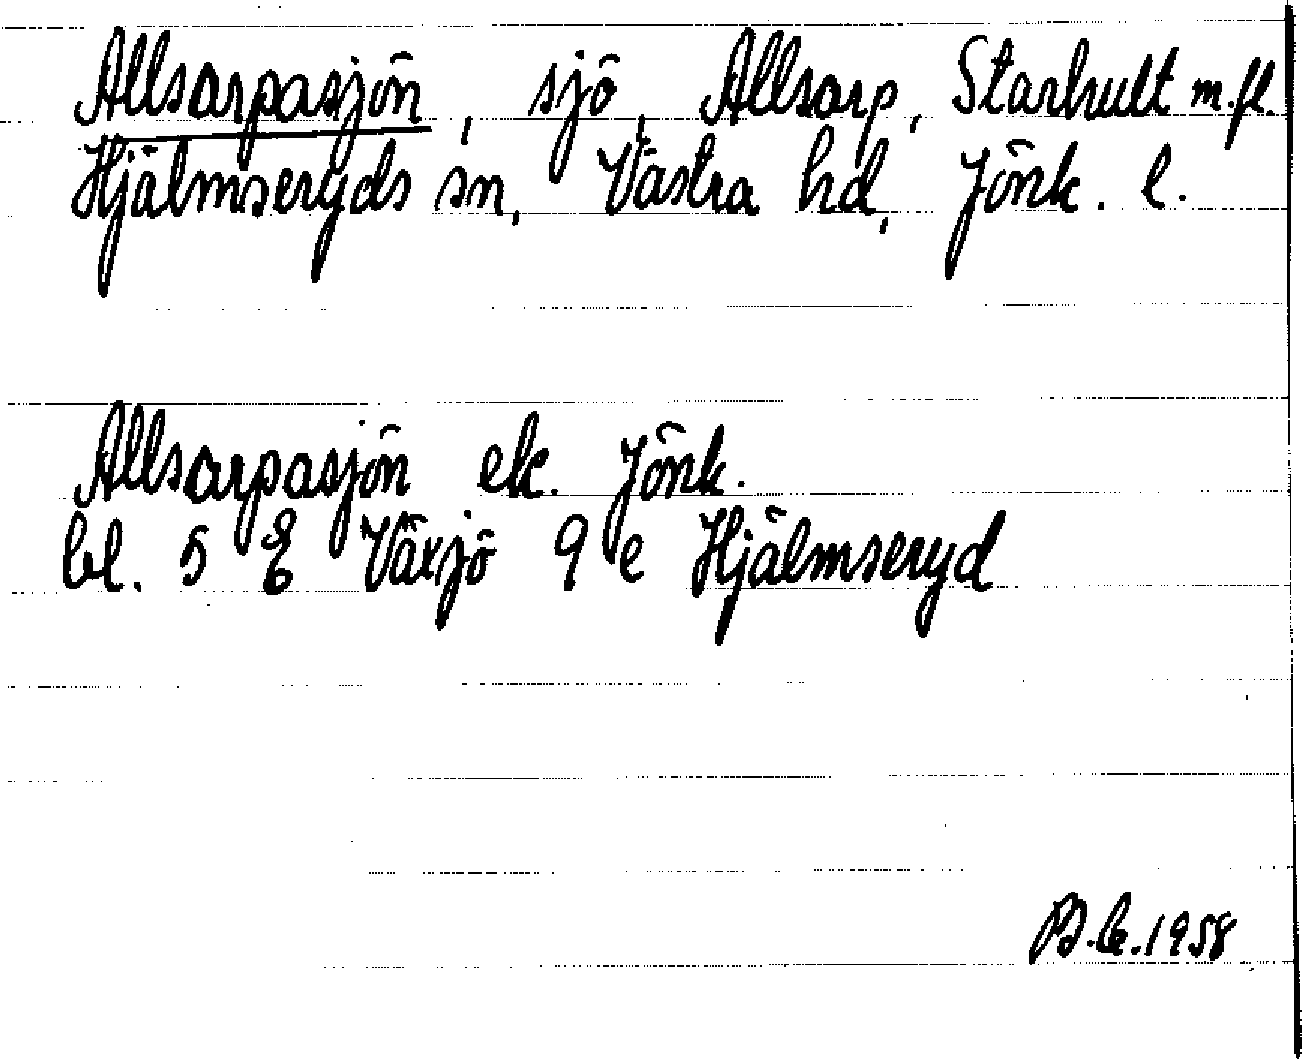 Allsarpasjön, sjö, Allsarp, Starhult m.fl.
Hjälmseryds sn, Västra hd, Jönk. l.
Allsarpasjön ek. Jönk.
bl. 5 E Växjö 9 e Hjälmseryd
1958